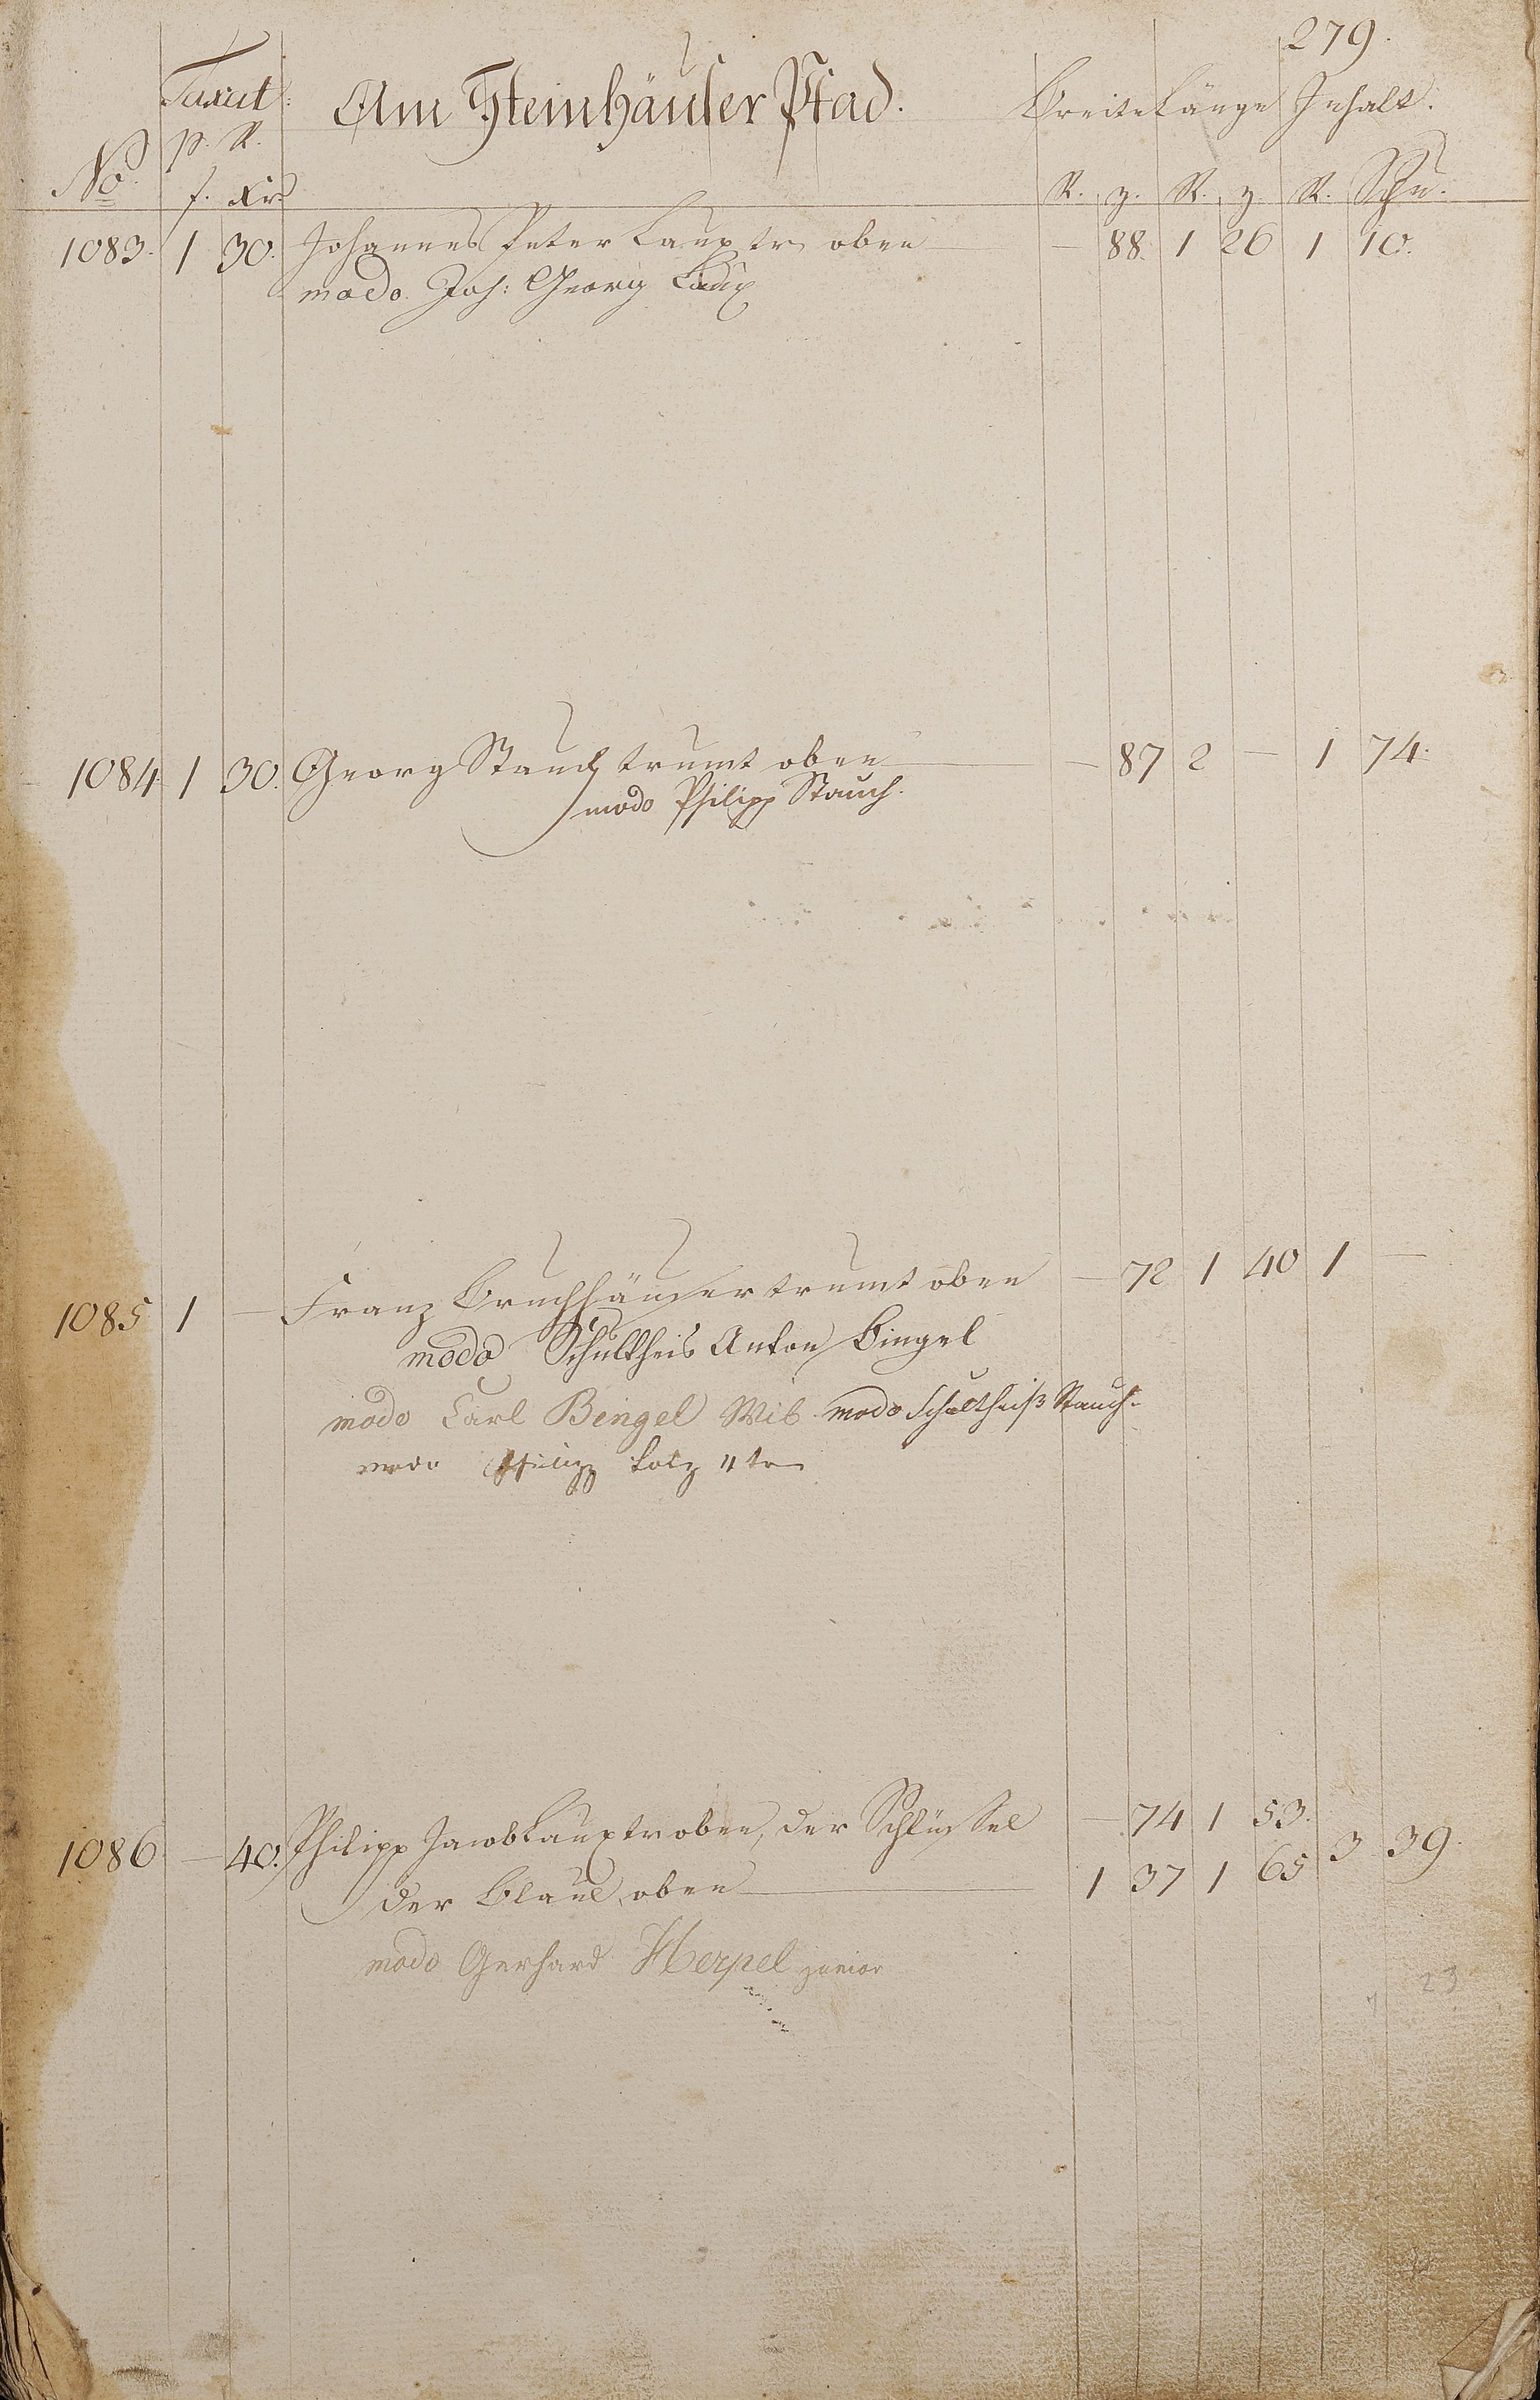 279.
Taxat: Am Steinhäuser Pfad. Breite Länge Inhalt.
p. R.
No f. Xr. R. z. R. z. R. Schu.
1083. 1 30. Johannes Peter Laux tr. oben — 88. 1 26 1 10.
modo. Joh: Georg Laux
1084 1 30. Georg Stauch trumt oben — 87 2 — 1 74.
modo Philipp Stauch.
1085 1 — Franz Bruchhäuser trumt oben — 72 1 40 1 —
modo Schultheis Anton Bingel
modo Carl Bengel Wib. modo Schultheiß Stauch.
modo Philipp Lotz IIter
1086 — 40. Philipp Jacob Laux tr oben, der Schlüssel — 74 1 53.
der Blaul oben 1 37 1 65 3 39.
modo Gerhard Herpel junior
23